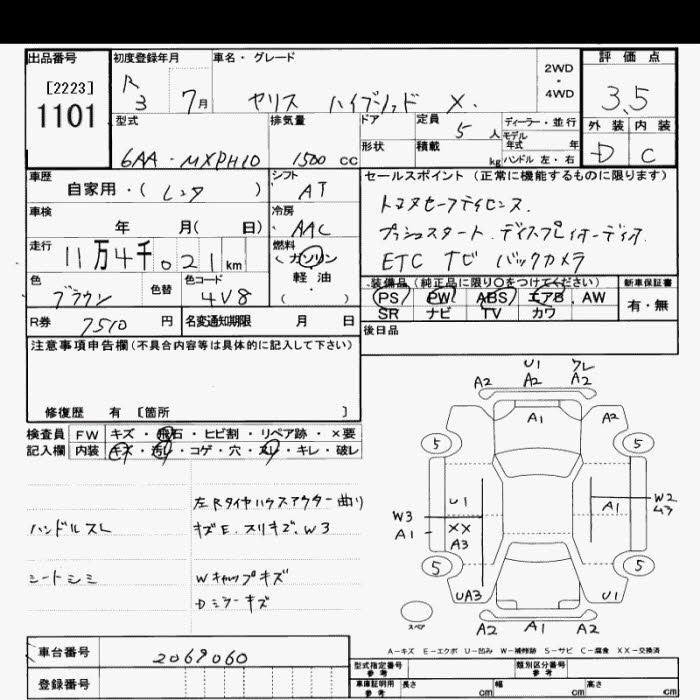 出品番号
[2223]
1101
初度登録年月
R 3 7月
車名・グレード
ヤリス ハイブリッド X.
2WD
・
4WD
評価点
3.5
外装 内装
D C
型式
6AA-MXPH10
排気量
1500 cc
ドア
形状
定員
5 人
積載
kg
ディーラー・並行
モデル年式 年
ハンドル 左・右
車歴
自家用・( レンタ )
シフト
AT
車検
年 月( 日)
冷房
AAC
走行
11万4千021km
燃料
ガソリン
軽油
( )
色
ブラウン
色替
色コード
4V8
R券 7510 円
名変通知期限 月 日
セールスポイント(正常に機能するものに限ります)
トヨタセーフティセンス.
プッシュスタート.ディスプレイオーディオ.
ETC ナビ バックカメラ
装備品(純正品に限り○をつけてください)
PS PW ABS エアB AW
SR ナビ TV カワ
新車保証書
有・無
後日品
注意事項申告欄(不具合内容等は具体的に記入して下さい)
修復歴 有 [箇所 ]
検査員
記入欄
FW キズ・飛石・ヒビ割・リペア跡・×要
内装 キズ・汚レ・コゲ・穴・スレ・キレ・破レ
左Rタイヤハウスアウター曲り
ハンドルスレ
キズE.スリキズ.W3
シートシミ
Wキャップキズ
Dミラーキズ
U1 ワレ
A2 A2 A2
A1 A2
5 5
U1 A1 W2
W3 XX
A1 A3
5 5
UA3 U1
スペア
A2 A1 A2
A-キズ E-エクボ U-凹み W-補修跡 S-サビ C-腐食 XX-交換済
車台番号 2069060
登録番号
型式指定番号 参考
類別区分番号 参考
車庫証明用 参考
長さ cm 幅 cm 高さ cm